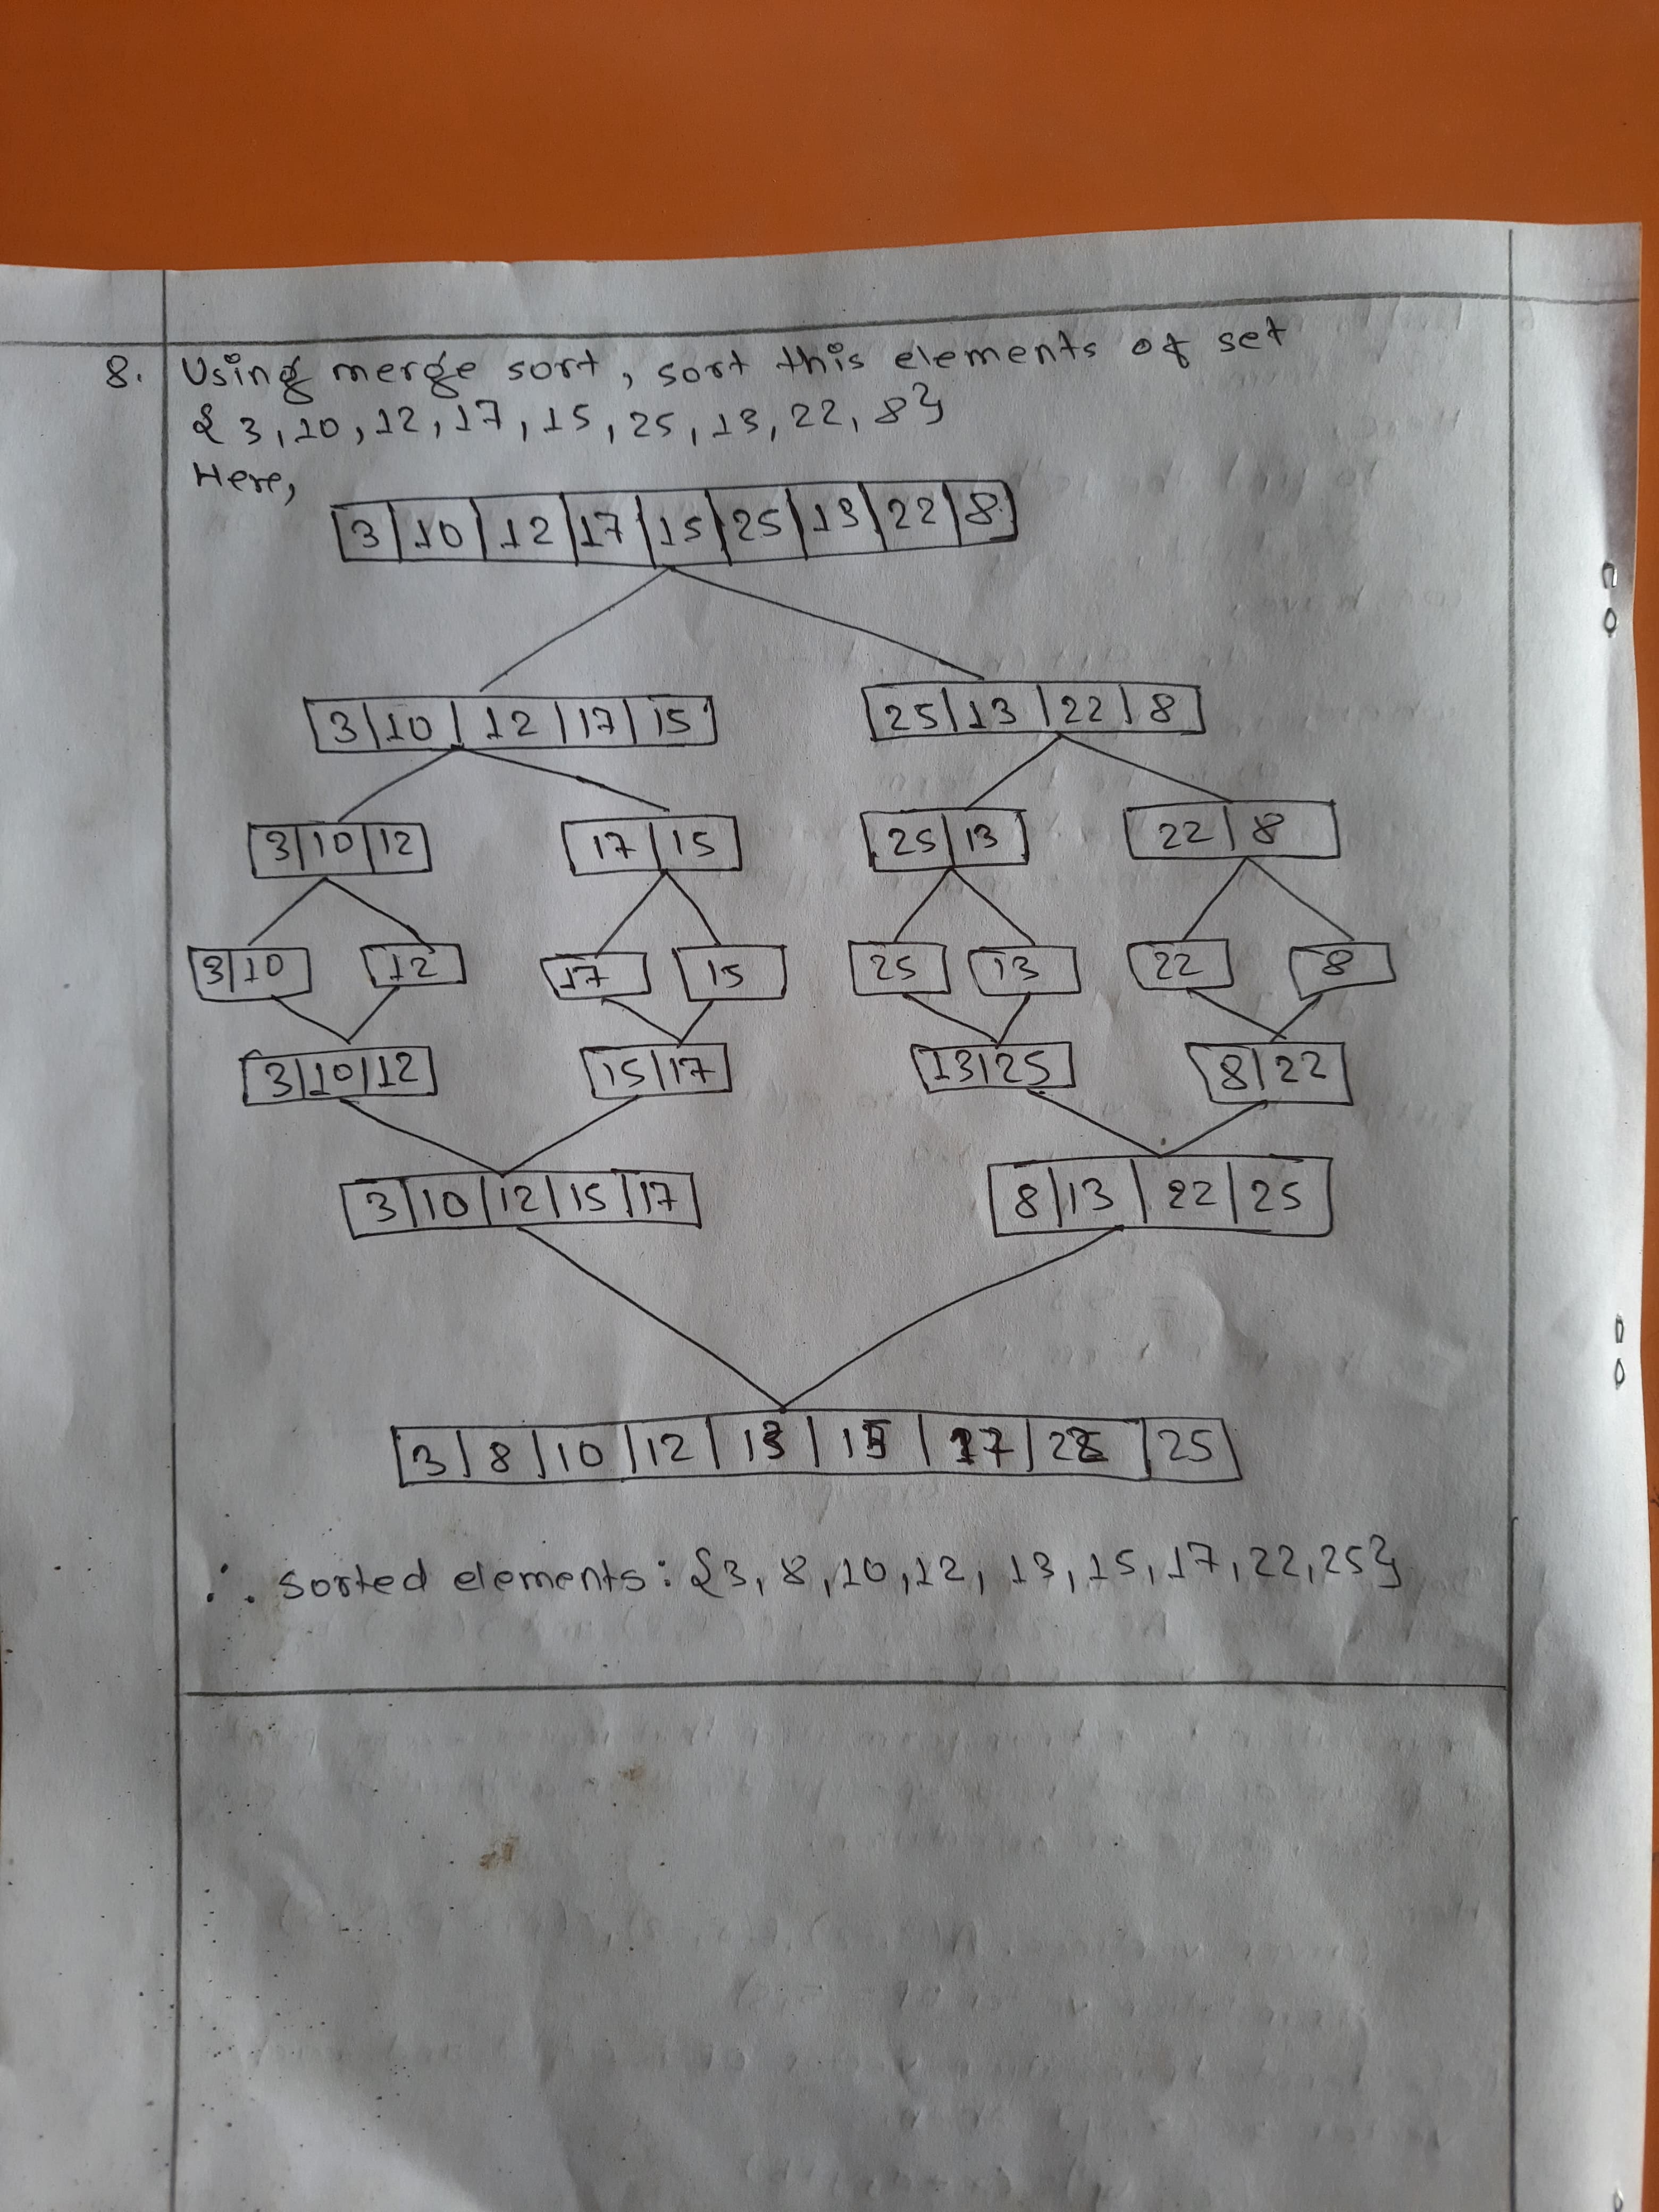 8. Using merge sort, sort this elements of set
{3, 10, 12, 17, 15, 25, 13, 22, 8}
Here,
3 | 10 | 12 | 17 | 15 | 25 | 13 | 22 | 8
3 | 10 | 12 | 17 | 15    25 | 13 | 22 | 8
3 | 10 | 12    17 | 15    25 | 13    22 | 8
3 | 10    12    17    15    25    13    22    8
3 | 10 | 12    15 | 17    13 | 25    8 | 22
3 | 10 | 12 | 15 | 17    8 | 13 | 22 | 25
3 | 8 | 10 | 12 | 13 | 15 | 17 | 22 | 25
∴ sorted elements: {3, 8, 10, 12, 13, 15, 17, 22, 25}